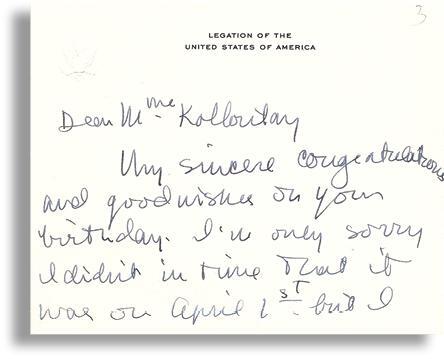 3
LEGATION OF THE
UNITED STATES OF AMERICA
Dear Mme Kollontay
My sincere congratulations
and good wishes on your
birthday. I'm only sorry
I didn't in time that it
was on April 1st but I